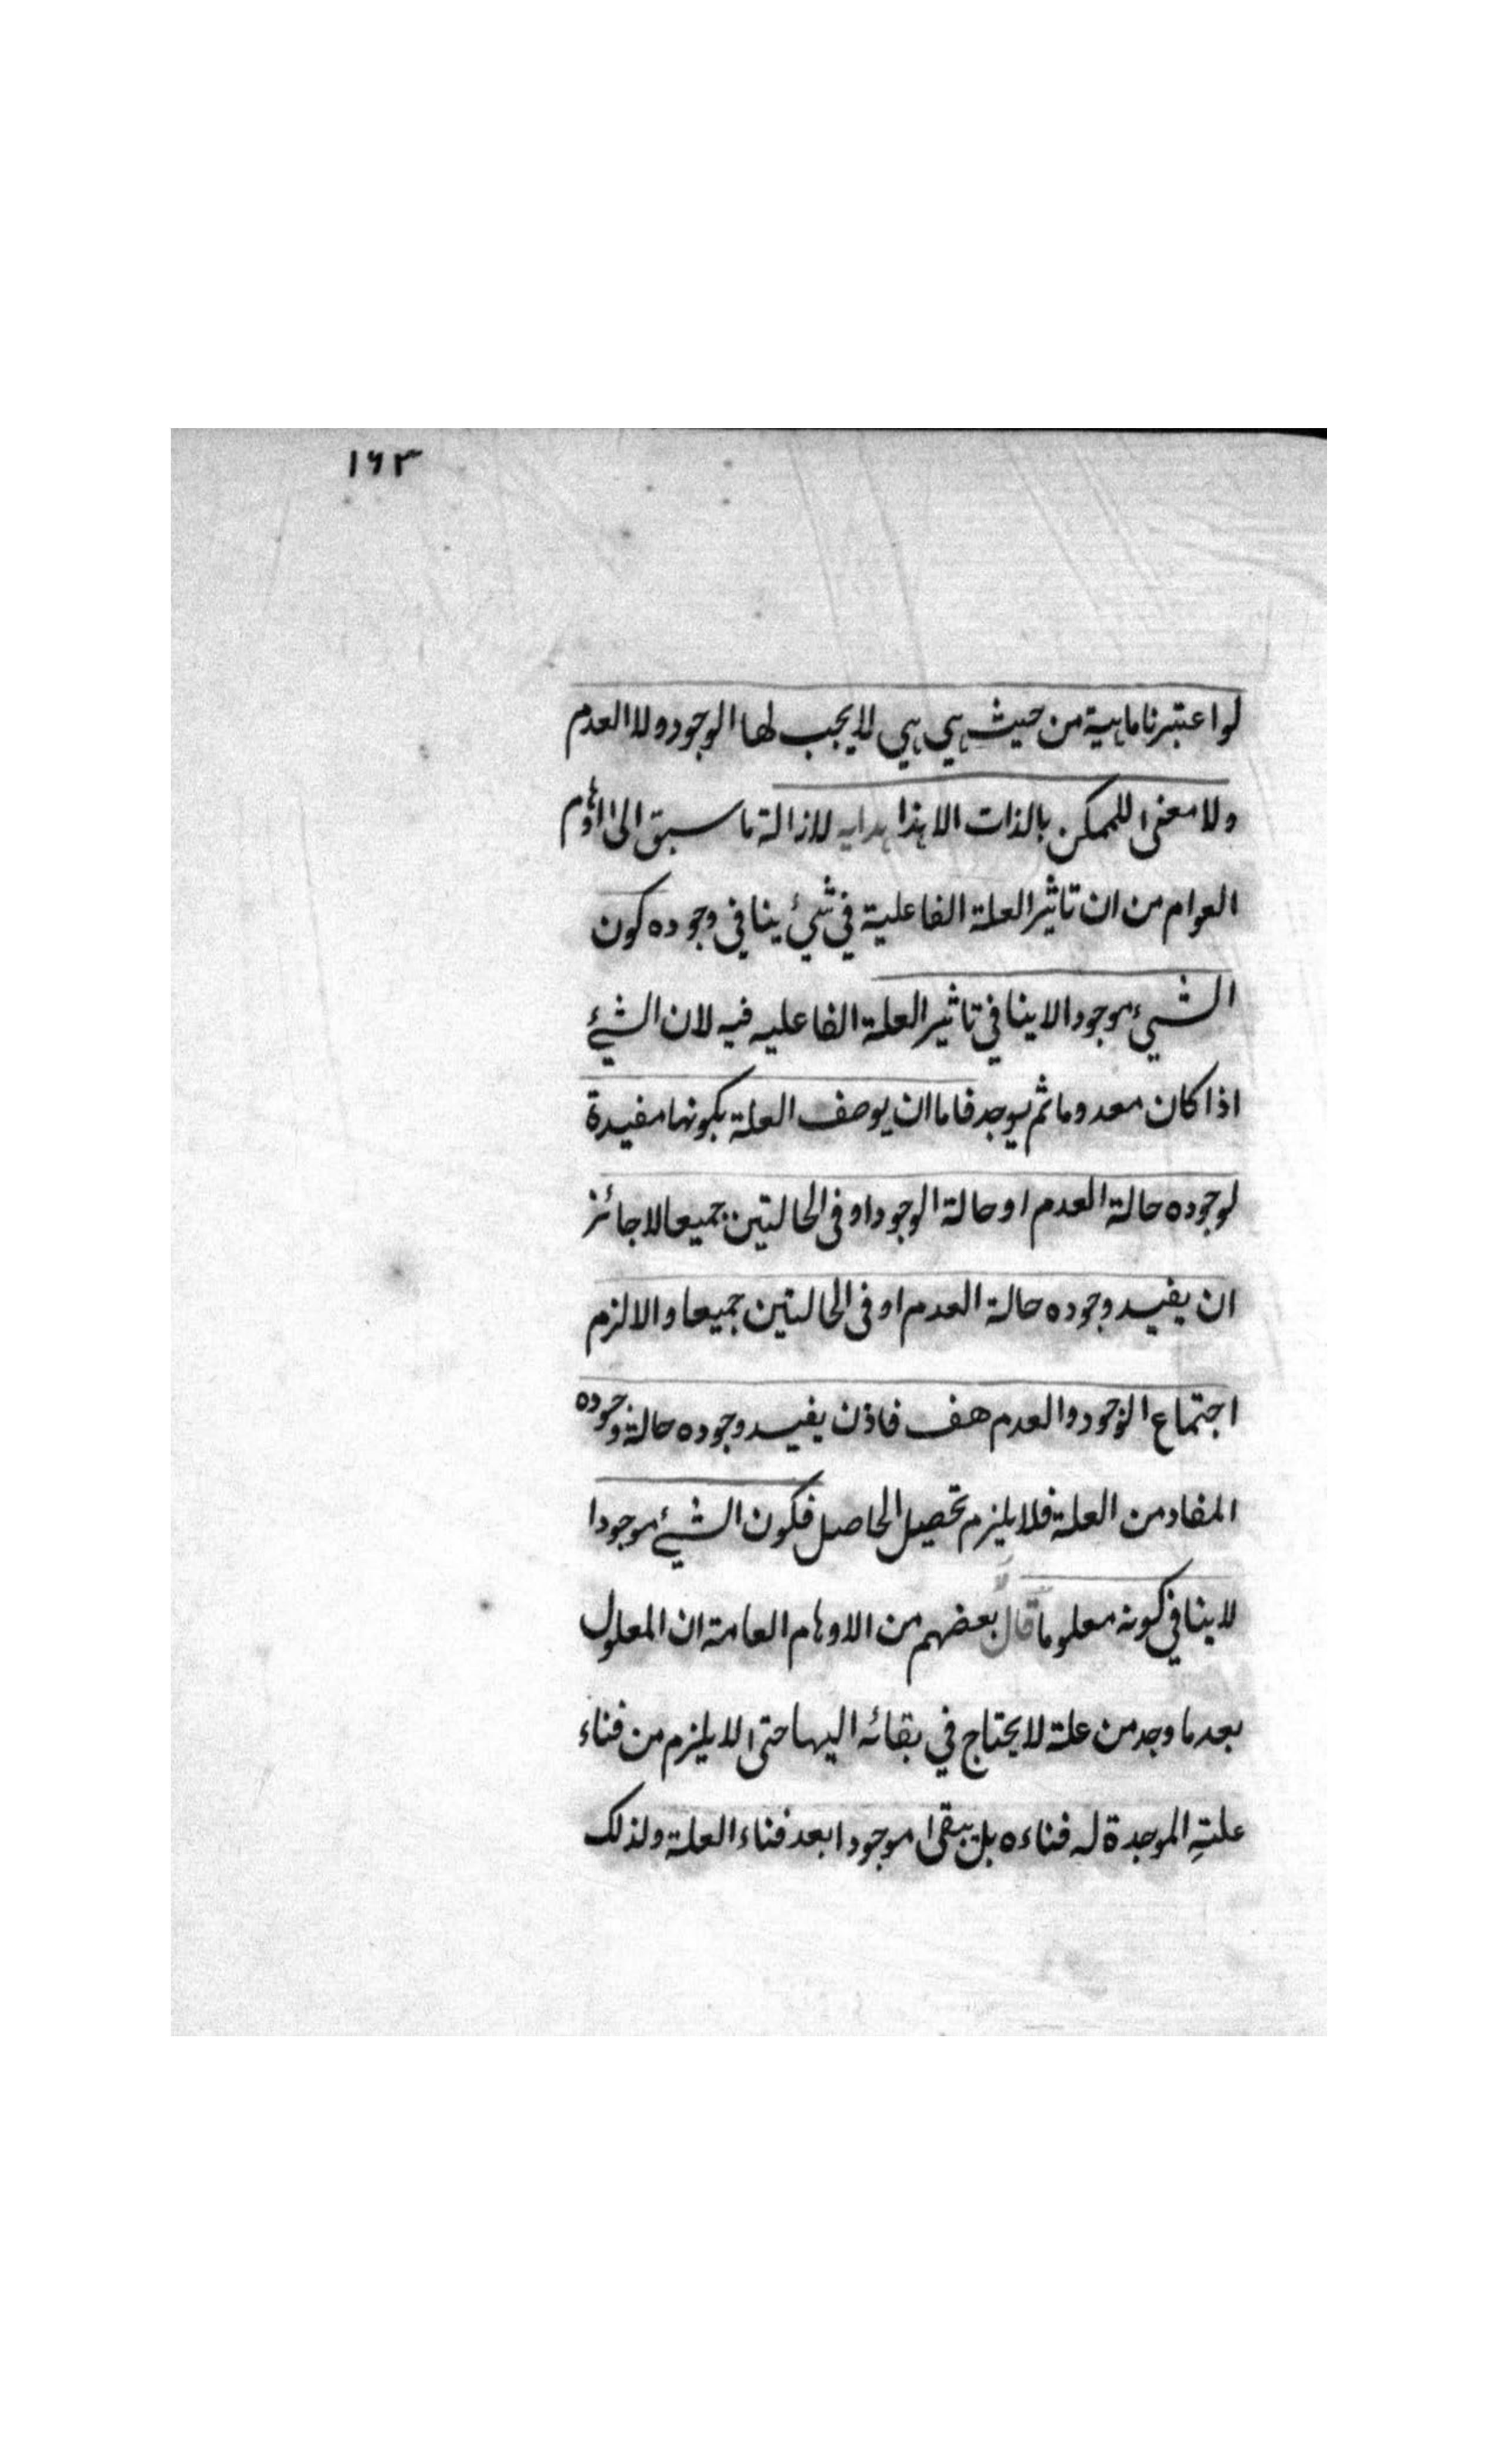 ١٦٣
لواعتبرنا ماهية من حيث هي هي لا يجب لها الوجود ولا العدم
ولا معنى للممكن بالذات الا هذا هدايه لازالة ما سبق الى اوهام
العوام من ان تاثير العلة الفاعلية في شيئ ينافي وجوده كون
الشيئ موجودا لا ينافي تاثير العلة الفاعليه فيه لان الشيئ
اذا كان معدوما ثم يوجد فاما ان يوصف العلة بكونها مفيدة
لوجوده حالة العدم او حالة الوجود او فى الحالتين جميعا لا جائز
ان يفيد وجوده حالة العدم او فى الحالتين جميعا والا لزم
اجتماع الوجود والعدم هف فاذن يفيد وجوده حالة وجوده
المفاد من العلة فلا يلزم تحصيل الحاصل فكون الشيئ موجودا
لا ينافي كونه معلوما قال بعضهم من الاوهام العامة ان المعلول
بعد ما وجد من علة لا يحتاج في بقائه اليها حتى لا يلزم من فناء
علتهِ الموجدة له فناءه بل يبقى موجودا بعد فناء العلة ولذلك